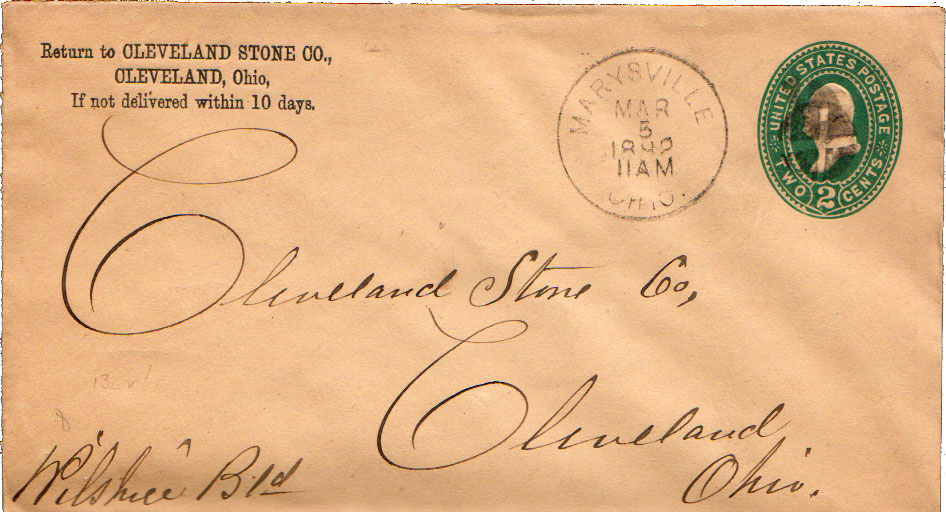 Return to CLEVELAND STONE CO.,
CLEVELAND, Ohio,
If not delivered within 10 days.
MARYSVILLE
MAR
5
1892
11AM
OHIO.
UNITED STATES POSTAGE
TWO 2 CENTS
Cleveland Stone Co,
Cleveland
Ohio.
"Wilshire" Bld